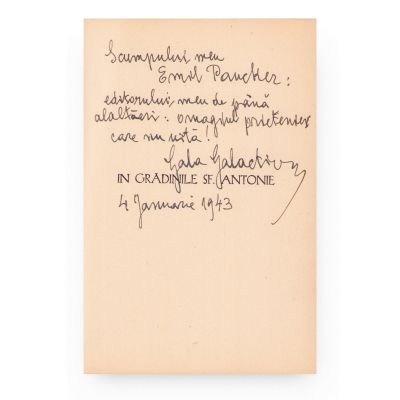 Scumpului meu
Emil Paucker:
editorului meu de până
alaltăeri: omagiul prieteniei
care nu uită!
Gala Galaction
IN GRĂDINILE SF. ANTONIE
4 Januarie 1943